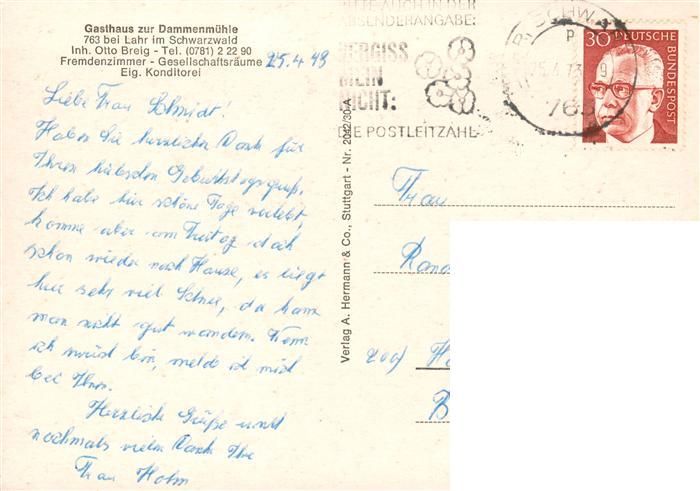 Gasthaus zur Dammenmühle
763 bei Lahr im Schwarzwald
Inh. Otto Breig - Tel. (0781) 2 22 90
Fremdenzimmer - Gesellschaftsräume
Eig. Konditorei
25.4.73
Liebe Frau Schmidt!
Haben Sie herzlichen Dank für
Ihren hübschen Geburtstagsgruß.
Ich habe hier schöne Tage verlebt,
komme aber am Freitag doch
schon wieder nach Hause, es liegt
hier sehr viel Schnee, da kann
man nicht gut wandern. Wenn
ich zurück bin, melde ich mich
bei Ihnen.
Herzliche Grüße und
nochmals vielen Dank Ihre
Frau Holm
Verlag A. Herrmann & Co., Stuttgart - Nr. 2042/30 A
BITTE AUCH IN DER
ABSENDERANGABE:
VERGISS
MEIN
NICHT:
DIE POSTLEITZAHL
SCHW
25.4.73
763
30
DEUTSCHE
BUNDESPOST
Frau